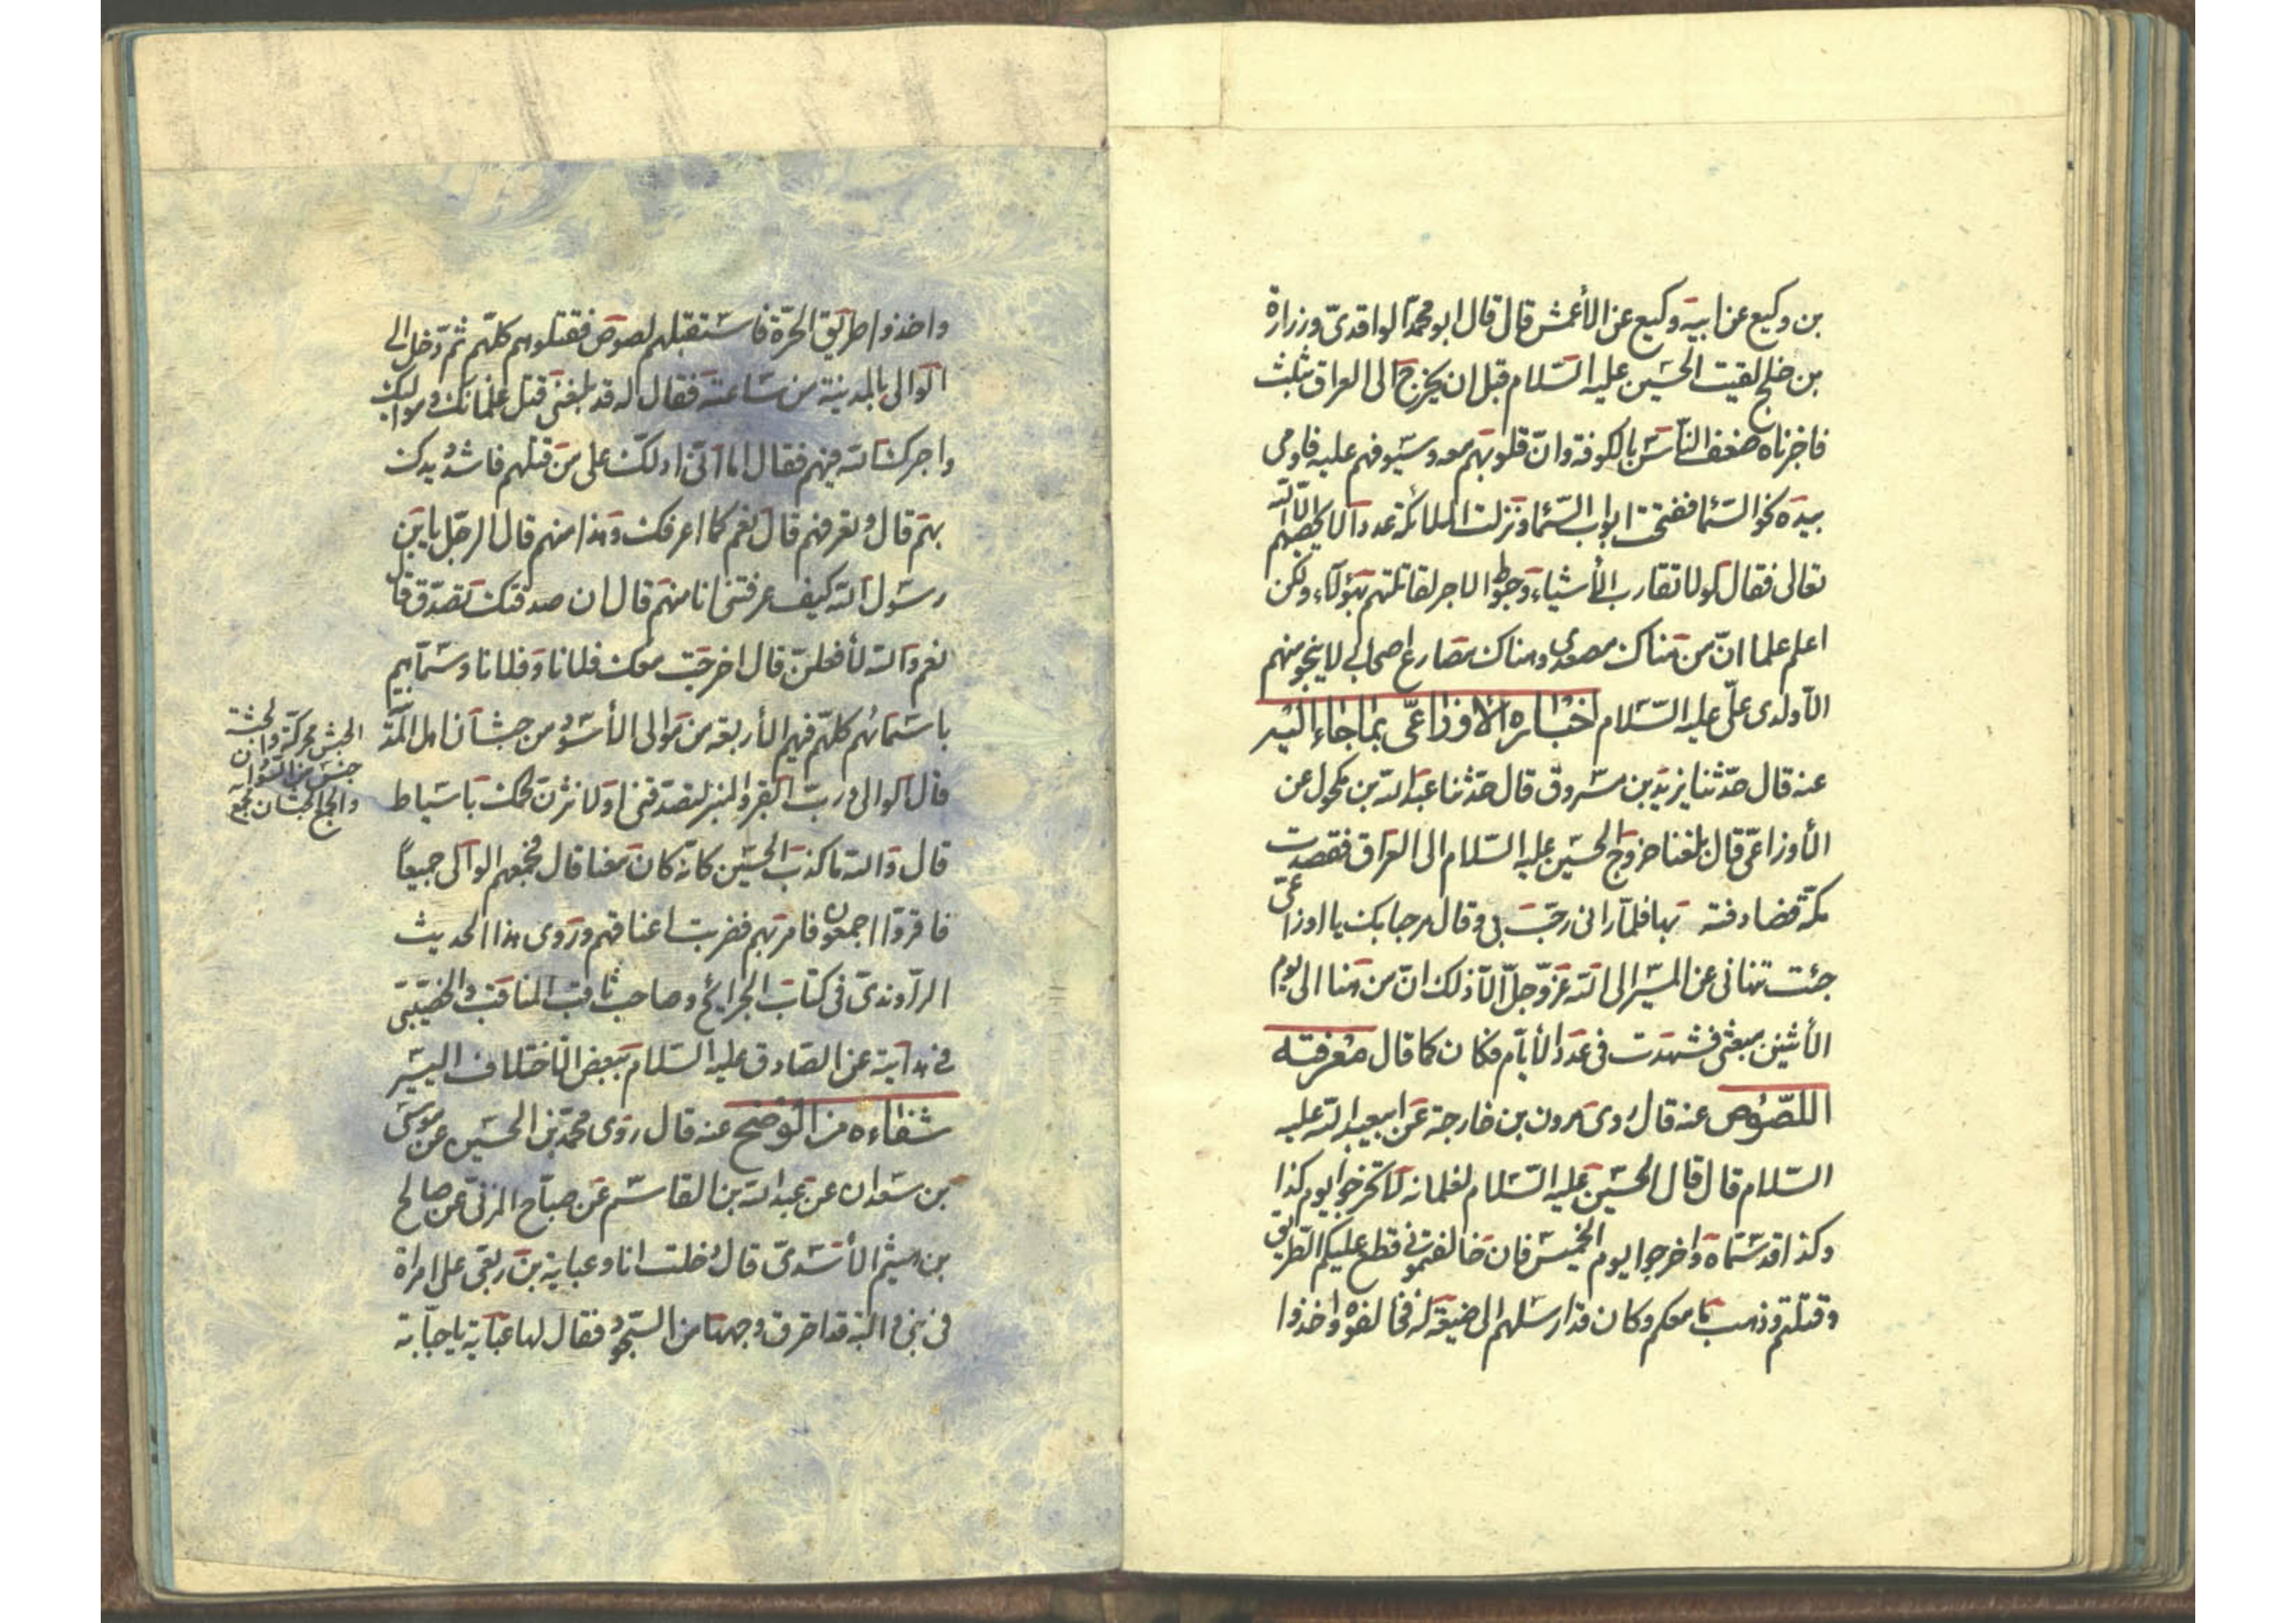 بن وكيع عن ابيه وكيع عن الأعمش قال قال ابو محمّد الواقدىّ وزرارة
بن خلج لقيت الحسين عليه السّلام قبل ان يخرج الى العراق بثلث
فاخبرناه ضعف النّاس بالكوفة وانّ قلوبهم معه وسيوفهم عليه فاومى
بيده نحو السّما ففتحت ابواب السّما ونزلت الملائكة عددا لا يحصيهم الّا اللّه
تعالى فقال لولا تقارب الأشياء وحبوط الاجر لقاتلتهم بهؤلاء ولكن
اعلم علما انّ من هناك مصعدى وهناك مصارع اصحابى لا ينجو منهم
الّا ولدى علىّ عليه السّلام اخباره الاوزاعىّ بما جاء اليه
عنه قال حدّثنا يزيد بن مسروق قال حدّثنا عبد اللّه بن مكحول عن
الأوزاعىّ قال بلغنا خروج الحسين عليه السّلام الى العراق فقصدت
مكّة فصادفته بها فلمّا رانى رحّب بى وقال مرحبا بك يا اوزاعىّ
جئت تنهانى عن المسير الى اللّه عزّ وجلّ الّا ذلك انّ من هنا الى يوم
الأثنين مبعثى فشهدت فى عدد الأيّام فكان كما قال معرفته
اللصّوص عنه قال روى هرون بن خارجة عن ابيعبد اللّه عليه
السّلام قال قال الحسين عليه السّلام لغلمانه لا تخرجوا يوم كذا
وكذا قد سمّاه واخرجوا يوم الخميس فان خالفتمونى قطع عليكم الطّريق
وقتلتم وذهب ما معكم وكان قد ارسلهم الى ضيعة له فخالفوه واخذوا
واخذوا طريق الحرّة فاستقبلهم لصوص فقتلوهم كلّهم ثمّ دخل الى
الوالى بالمدينة من ساعته فقال له قد بلغنى قتل غلمانك ومواليك
واجرك اللّه فيهم فقال اما انّى ادلّك على من قتلهم فاشدد يدك
بهم قال وتعرفهم قال نعم كما اعرفك وهذا منهم قال الرّجل يابن
رسول اللّه كيف عرفتنى انا منهم قال ان صدقتك تصدّق قال
نعم واللّه لأفعلنّ قال اخرجت معك فلانا وفلانا وسمّاهم
باسمائهم كلّهم فيهم الأربعة من موالى الأسود من حبشان اهل المدينة
قال الوالى وربّ القبر والمنبر لتصدقنى او لانثرنّ لحمك باسياط
قال واللّه ما كذب الحسين كانّه كان معنا قال فجمعهم الوالى جميعاً
فاقرّوا اجمعون فامر بهم فضربت اعناقهم وروى هذا الحديث
الرّاوندىّ فى كتاب الجرائح وصاحب ثاقب المناقب والخصيبى
فى هدايته عن الصّادق عليه السّلام ببعض الأختلاف اليسير
شفاءه من الوضح عنه قال روى محمّد بن الحسين عن موسى
بن سعدان عن عبد اللّه بن القاسم عن صبّاح المزنىّ عن صالح
بن ميثم الأسدىّ قال دخلت انا وعباية بن ربعى على امراة
فى بنى والبة قد احترق وجهها من السّجود فقال لها عباية يا حبّابة
الحبش محركة والحبشة
جنس من السّودان
والجمع حبشان